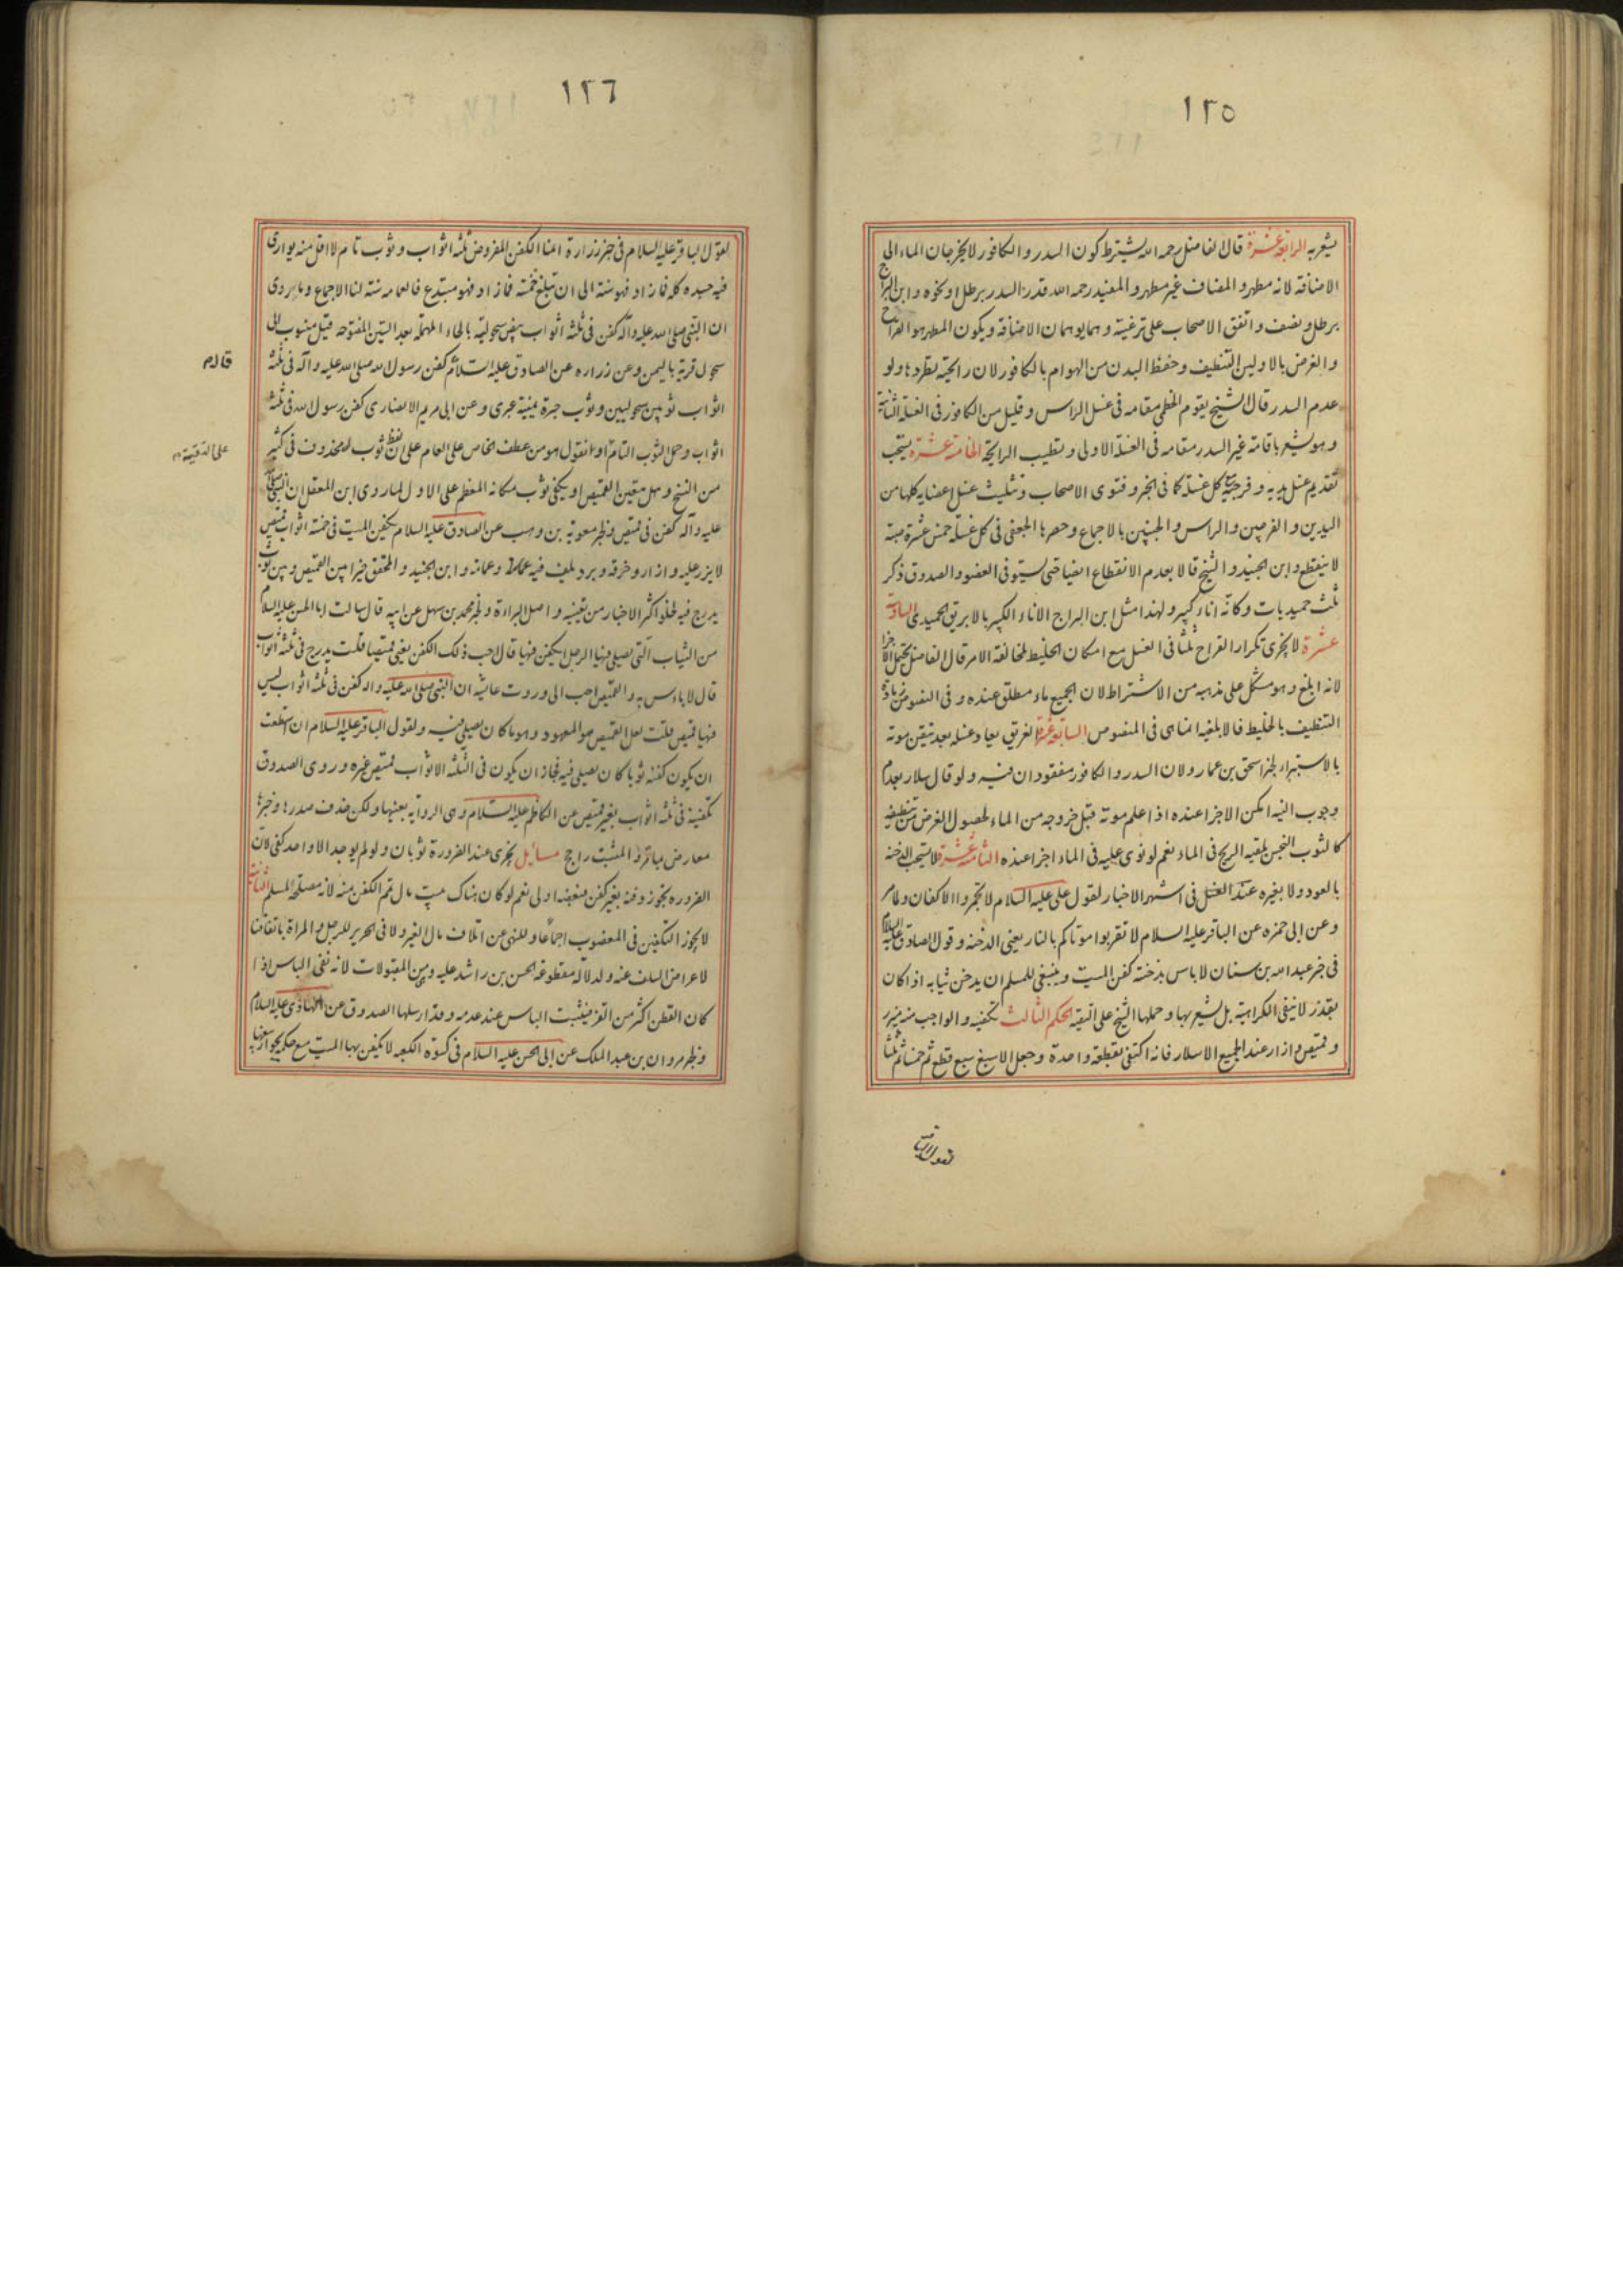 ١٢٥
يشعر به الرابعة عشرة قال الفاضل رحمه الله يشترط كون السدر والكافور لا يخرجان الماء الى
الاضافة لانه مطهر والمضاف غير مطهر والمفيد رحمه الله قدر السدر برطل او نحوه وابن البراج
برطل ونصف واتفق الاصحاب على ترغيته وهما يوهمان الاضافة ويكون المطهر هو القراح
والغرض بالاولين التنظيف وحفظ البدن من الهوام بالكافور لان رائحته تطردها ولو
عدم السدر قال الشيخ يقوم الخطمي مقامه في غسل الراس وقليل من الكافور في الغسلة الثانية
وهو يشعر باقامة غير السدر مقامه في الغسلة الاولى وتطييب الرايحة الخامسة عشرة يستحب
تقديم غسل يديه وفرجيه مع كل غسلة كما في الخبر وفتوى الاصحاب وتثليث غسل اعضايه كلها من
اليدين والفرجين والراس والجنبين بالاجماع وحصرها الجعفي في كل غسلة خمس عشرة صبة
لا ينقطع وابن الجنيد والشيخ قالا بعدم الانقطاع ايضا حتى يستوفى العضو والصدوق ذكر
ثلث حميديات وكانه اناء كبير ولهذا مثل ابن البراج الاناء الكبير بالابريق الحميدي السادسة
عشرة لا يجزى تكرار القراح ثلثا في الغسل مع امكان الخليط لمخالفة الامر قال الفاضل يحتمل الاجزا
لانه ابلغ وهو مشكل على مذهبه من الاشتراط لان الجميع ماء مطلق عنده وفي النصوص زيادة
التنظيف بالخليط فالابلغية انما هى في المنصوص السابعة عشرة الغريق يعاد غسله بعد تيقن موته
بالاستبراء لخبر اسحق بن عمار ولان السدر والكافور مفقودان فيه ولو قال سلار بعدم
وجوب النية امكن الاجزا عنده اذا علم موته قبل خروجه من الماء لحصول الغرض من تنظيفه
كالثوب النجس يلقيه الريح في الماء نعم لو نوى عليه في الماء اجزا عنده الثامنة عشرة لا يستحب الدخنة
بالعود ولا بغيره عند الغسل في اشهر الاخبار لقول على عليه السلام لا تجمروا الاكفان ولما مر
وعن ابى حمزه عن الباقر عليه السلام لا تقربوا موتاكم بالنار يعنى الدخنه وقول الصادق عليه السلام
في خبر عبد الله بن سنان لا باس بدخنة كفن الميت وينبغى للمسلم ان يدخن ثيابه اذا كان
يقدر لا ينفى الكراهية بل يشعر بها وحملها الشيخ على التقيه الحكم الثالث تكفينه والواجب منه مئزر
وقميص وازار عند الجميع الا سلار فانه اكتفى بقطعة واحدة وجعل الاسبغ سبع قطع ثم خمسا ثم ثلثا
لقول الباقر
١٢٦
لقول الباقر عليه السلام في خبر زرارة انما الكفن المفروض ثلثه اثواب وثوب تام لا اقل منه يوارى
فيه جسده كله فما زاد فهو سنة الى ان تبلغ خمسة فما زاد فهو مبتدع فالعمامه سنة لنا الاجماع وما روى
ان النبى صلى الله عليه وآله كفن في ثلثه اثواب بيض سحولية بالحاء المهملة بعد السين المفتوحه قيل منسوب الى
سحول قرية باليمن وعن زراره عن الصادق عليه السلام كفن رسول الله صلى الله عليه وآله في ثلثه
اثواب ثوبين سحوليين وثوب حبرة يمنية عبرى وعن ابى مريم الانصارى كفن رسول الله في ثلثه
اثواب وحمل الثوب التام او نقول هو من عطف الخاص على العام على ان لفظ ثوب محذوف في كثير
من النسخ وهل يتعين القميص او يكفى ثوب مكانه المعظم على الاول لما روى ابن المغفل ان النبى صلى الله
عليه وآله كفن في قميص ولخبر معوية بن وهب عن الصادق عليه السلام يكفن الميت في خمسة اثواب قميص
لا يزر عليه وازار وخرقه وبرد يلف فيه وعمامة وابن الجنيد والمحقق خيرا بين القميص وبين ثوب
يدرج فيه لخلو اكثر الاخبار من تعيينه واصل البراءة ولخبر محمد بن سهل عن ابيه قال سالت ابا الحسن عليه السلام
من الثياب التى يصلى فيها الرجل يكفن فيها قال احب ذلك الكفن يعنى قميصا قلت يدرج في ثلثه اثواب
قال لا باس به والقميص احب الى وروت عايشه ان النبى صلى الله عليه وآله كفن في ثلثه اثواب ليس
فيها قميص قلت لعل القميص هو المعهود وهو ما كان يصلى فيه ولقول الباقر عليه السلام ان استطعت
ان يكون كفنه ثوبا كان يصلى فيه فجاز ان يكون في الثلثه الاثواب قميص غيره وروى الصدوق
تكفينه في ثلثه اثواب بغير قميص عن الكاظم عليه السلام وهى الرواية بعينها ولكن حذف صدرها وخبرها
معارض بباقر والمثبت راجح مسائل يجزى عند الضرورة ثوبان ولو لم يوجد الا واحد كفى لان
الضروره تجوز دفنه بغير كفن فبعضه اولى نعم لو كان هناك بيت مال تمم الكفن منه لانه مصلحة المسلم الثانية
لا يجوز التكفين في المغصوب اجماعا وللنهى عن اتلاف مال الغير ولا في الحرير للرجل والمراة باتفاقنا
لاعراض السلف عنه ولدلالة مقطوعة الحسن بن راشد عليه وهى من المقبولات لانه نفى الباس اذا
كان القطن اكثر من القز فيثبت الباس عند عدمه وقد ارسلها الصدوق عن الهادى عليه السلام
ولخبر مروان بن عبد الملك عن ابى الحسن عليه السلام في كسوة الكعبه لا يكفن بها الميت مع حكمه بجواز بيعها
على التقية